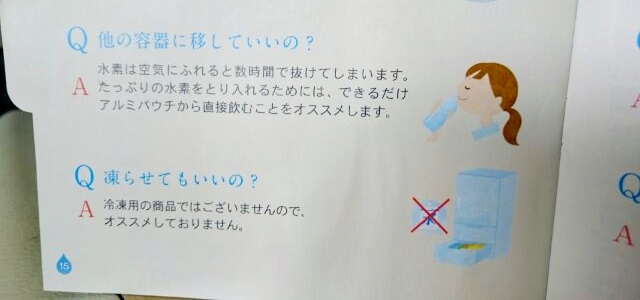 Q 他の容器に移していいの？
A 水素は空気にふれると数時間で抜けてしまいます。
たっぷりの水素をとり入れるためには、できるだけ
アルミパウチから直接飲むことをオススメします。
Q 凍らせてもいいの？
A 冷凍用の商品ではございませんので、
オススメしておりません。
15
Q
A